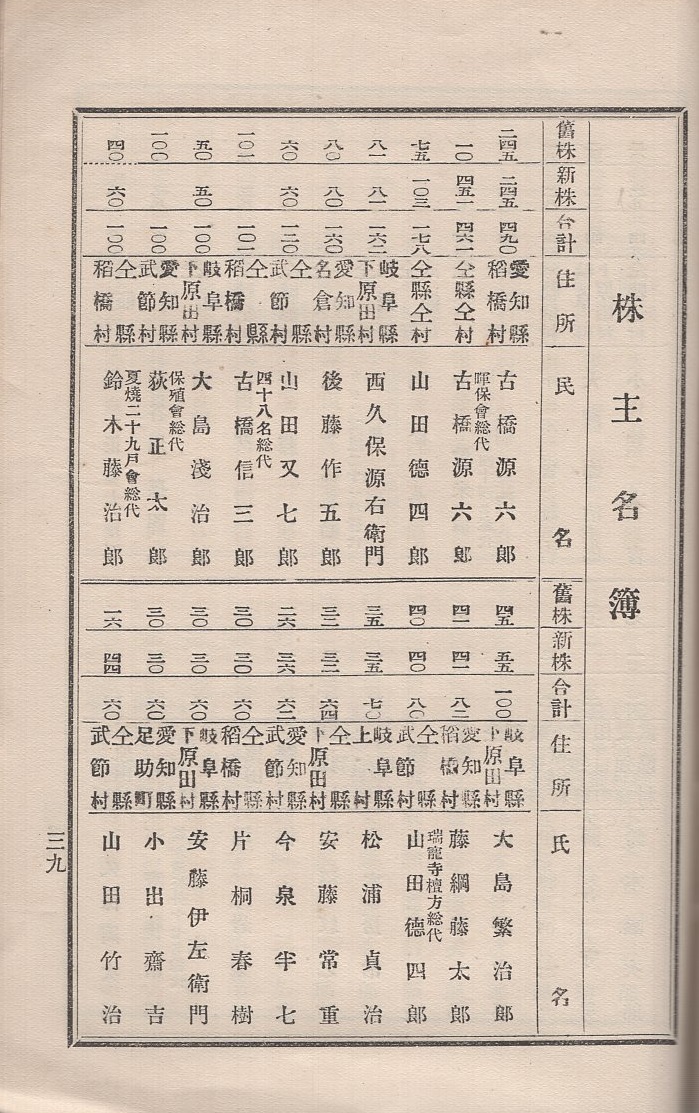 株主名簿
舊株 新株 合計 住所 民名
二四五 二四五 四九〇 愛知縣稻橋村 古橋源六郎
一〇 四五一 四六一 仝縣仝村 暉保會総代 古橋源六郎
七五 一〇三 一七八 仝縣仝村 山田德四郎
八一 八一 一六二 岐阜縣下原田村 西久保源右衛門
八〇 八〇 一六〇 愛知縣名倉村 後藤作五郎
六〇 六〇 一二〇 仝縣武節村 山田又七郎
一〇一 一〇一 仝縣稻橋村 四十八名総代 古橋信三郎
五〇 五〇 一〇〇 岐阜縣下原田村 大島淺治郎
一〇〇 一〇〇 愛知縣武節村 保殖會総代 荻正太郎
四〇 六〇 一〇〇 仝縣稻橋村 夏燒二十九戸會総代 鈴木藤治郎
舊株 新株 合計 住所 氏名
四五 五五 一〇〇 岐阜縣下原田村 大島繁治郎
四一 四一 八二 愛知縣稻橋村 藤綱藤太郎
四〇 四〇 八〇 仝縣武節村 瑞龍寺檀方総代 山田德四郎
三五 三五 七〇 岐阜縣上村 松浦貞治
三二 三二 六四 仝縣下原田村 安藤常重
二六 三六 六二 愛知縣武節村 今泉半七
三〇 三〇 六〇 仝縣稻橋村 片桐春樹
三〇 三〇 六〇 岐阜縣下原田村 安藤伊左衛門
三〇 三〇 六〇 愛知縣足助町 小出齋吉
一六 四四 六〇 仝縣武節村 山田竹治
三九